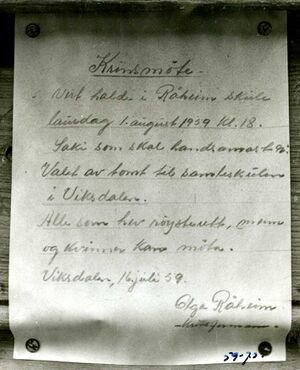 Krinsmöte.
Vert halde i Råheim skule
laurdag 1. august 1959 kl. 18.
Saki som skal handsamast er:
Valet av tomt til samleskulen
i Viksdalen.
Alle som hev röysterett, menn
og kvinner kan möte.
Viksdalen, 16 juli 59.
Olga Råheim
59-73